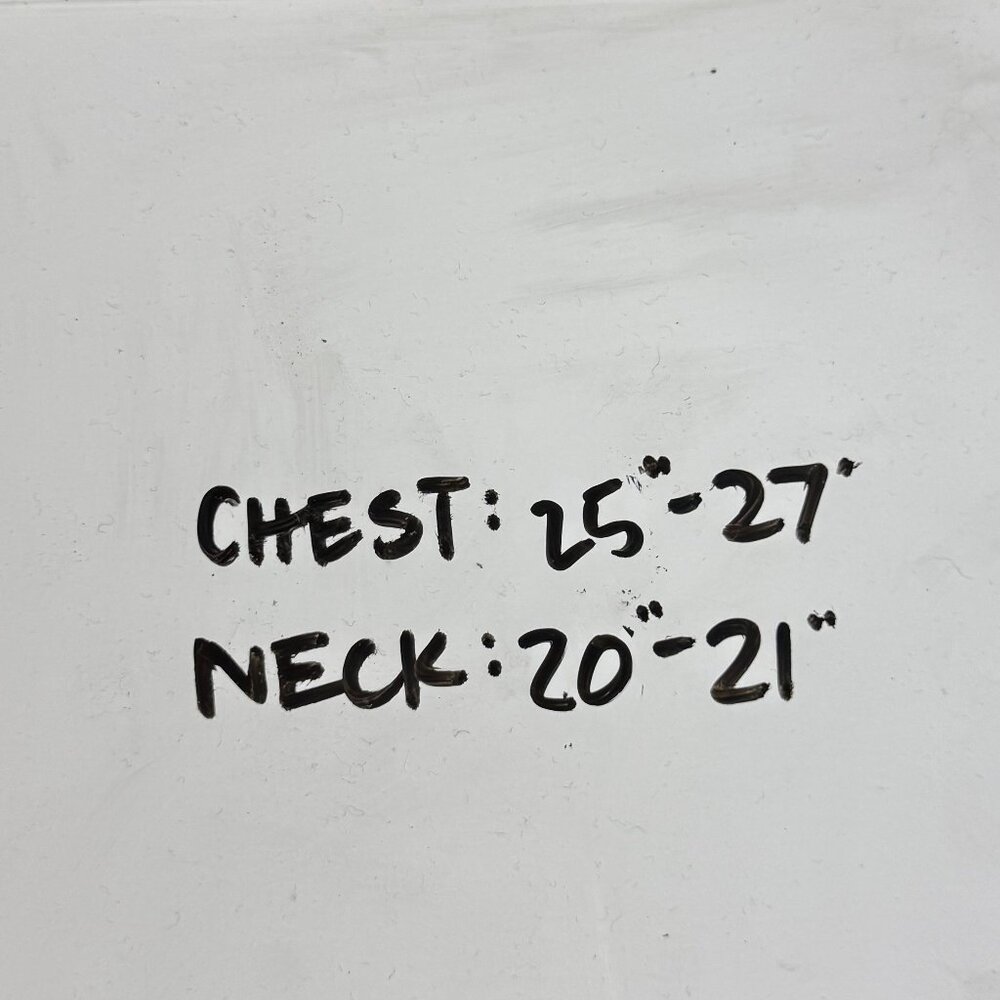 CHEST: 25"-27"
NECK: 20"-21"